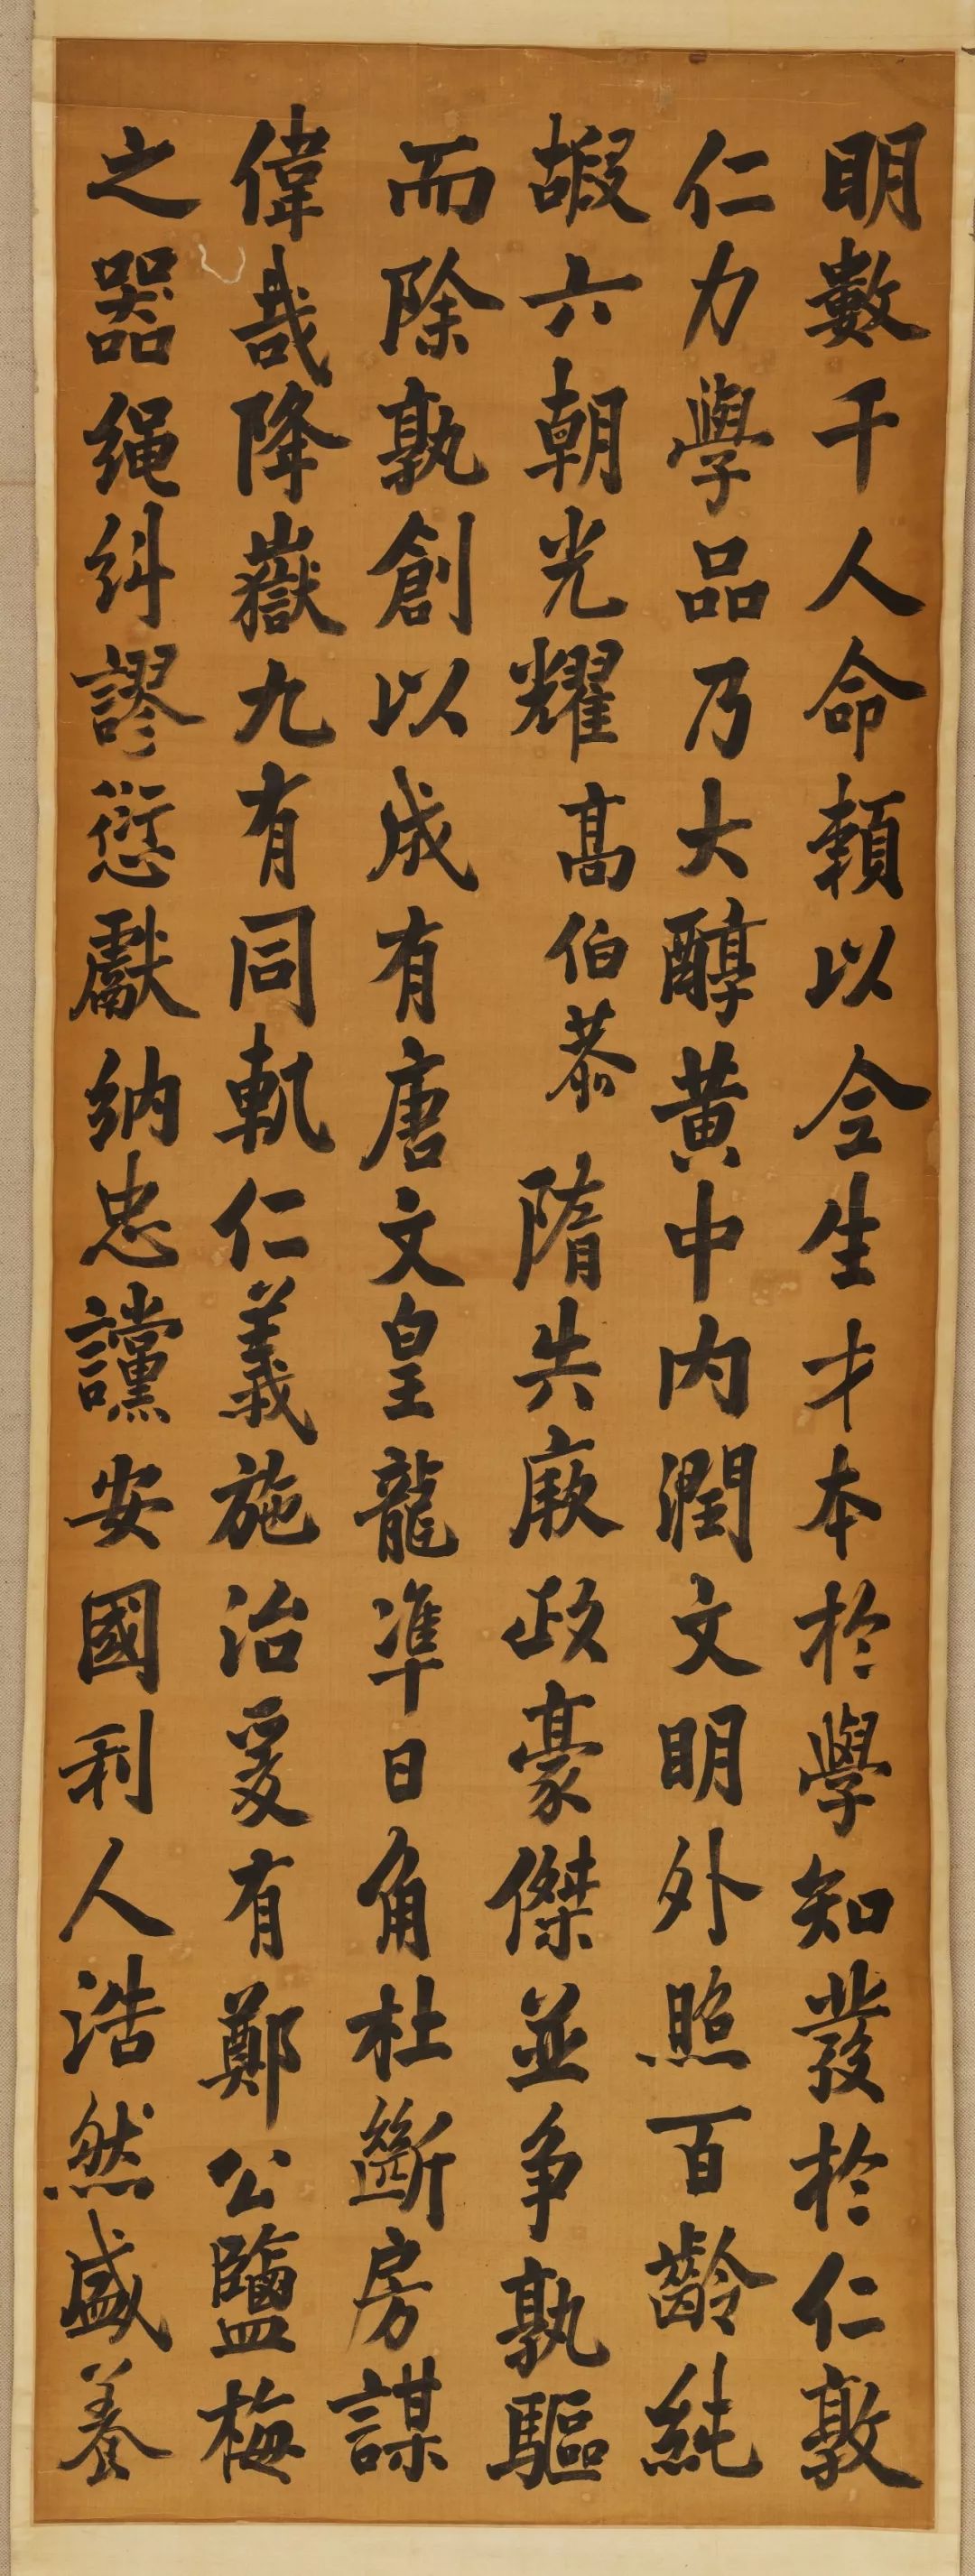 明數千人命賴以全生才本於學知發於仁敦
仁力學品乃大醇黃中内潤文明外照百齡純
嘏六朝光耀高伯恭隋失厥政豪傑並爭孰驅
而除孰創以成有唐文皇龍準日角杜斷房謀
偉哉降嶽九有同軌仁義施治爰有鄭公鹽梅
之器繩糾謬愆獻納忠讜安國利人浩然盛養